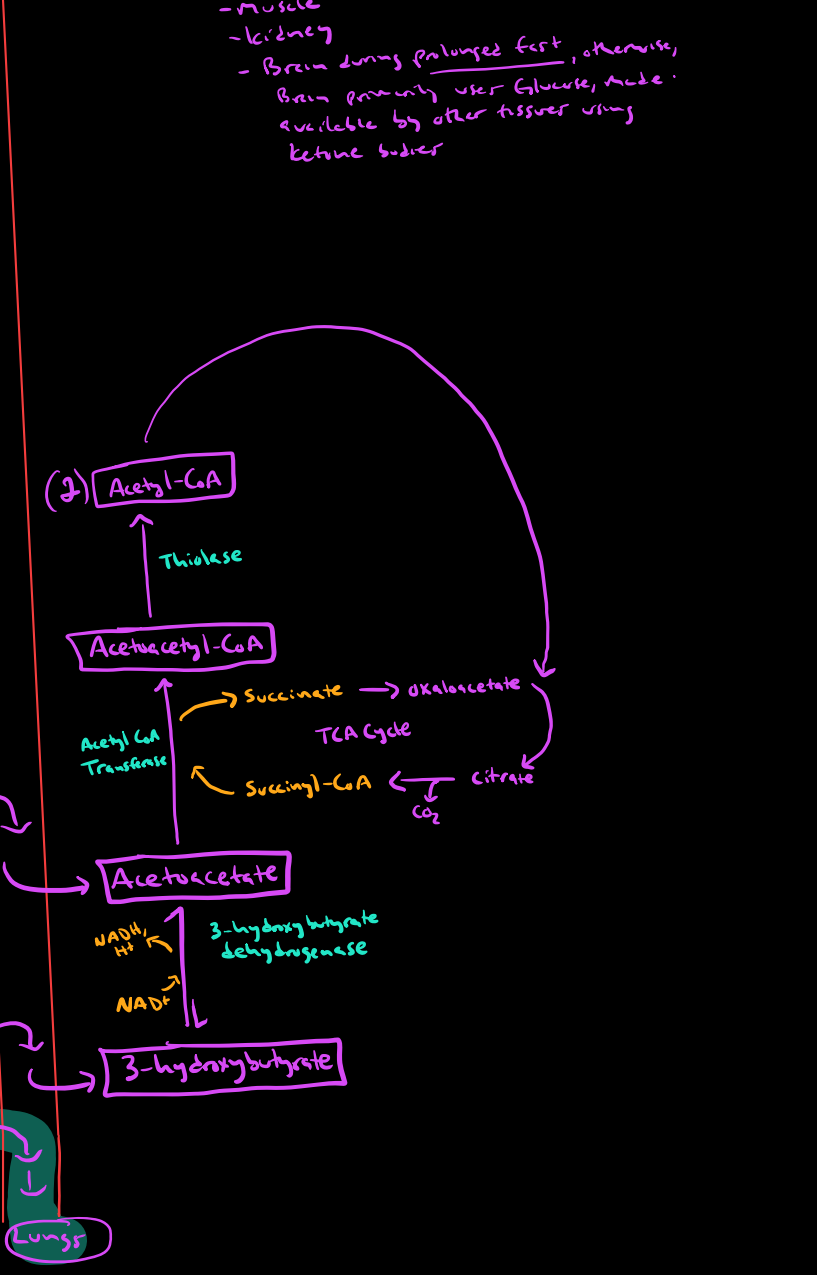 -Muscle
-Kidney
- Brain during prolonged fast, otherwise,
Brain primarily uses Glucose, made
available by other tissues using
ketone bodies
(2) Acetyl-CoA
Thiolase
Acetoacetyl-CoA
Succinate → oxaloacetate
Acetyl CoA
Transferase
TCA Cycle
Succinyl-CoA ← Citrate
CO2
Acetoacetate
NADH,
H+
3-hydroxybutyrate
dehydrogenase
NAD+
3-hydroxybutyrate
Lungs